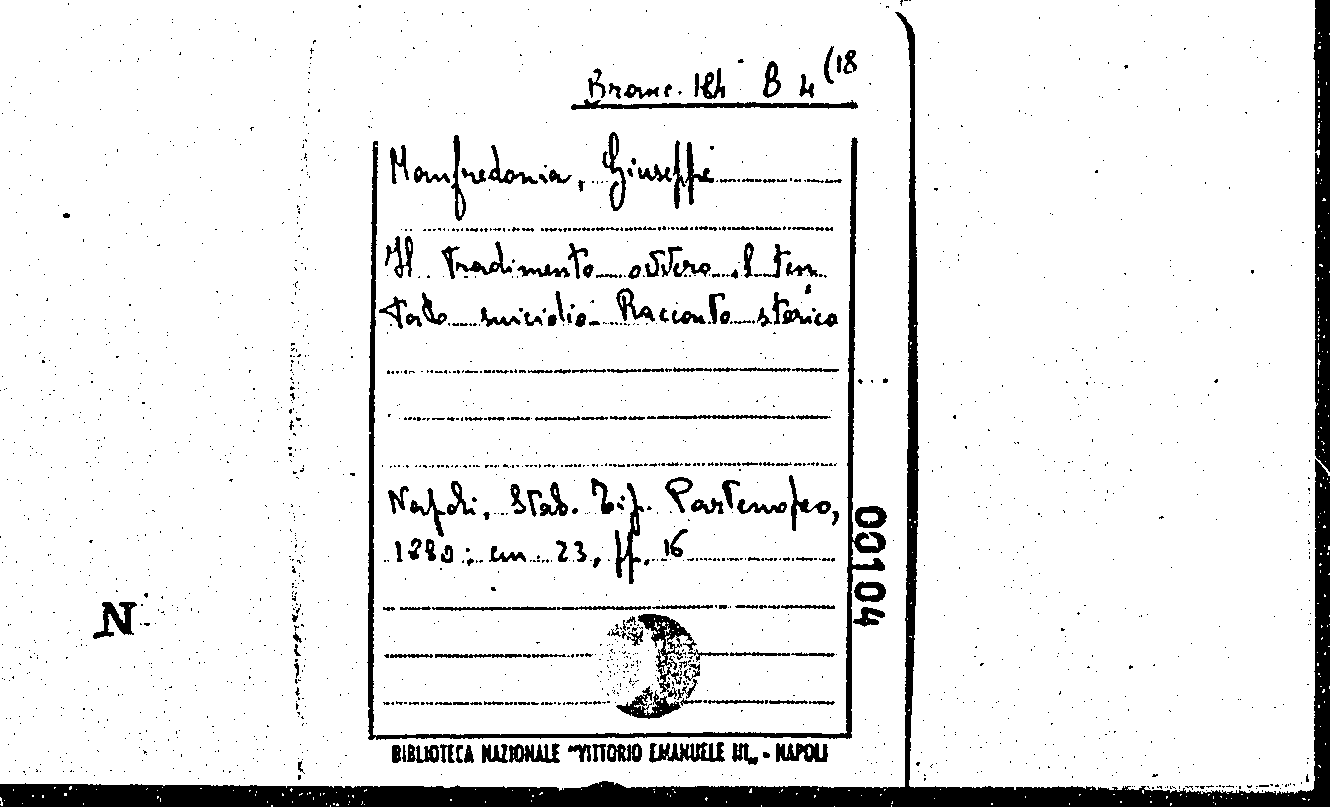 Branc. 184 B 4 (18
Manfredonia, Giuseppe
Il Tradimento ovvero il ten
tato suicidio. Racconto storico
Napoli, Stab. Tip. Partenopeo,
1880; cm. 23, pp. 16
00104
N
BIBLIOTECA NAZIONALE "VITTORIO EMANUELE III„ - NAPOLI